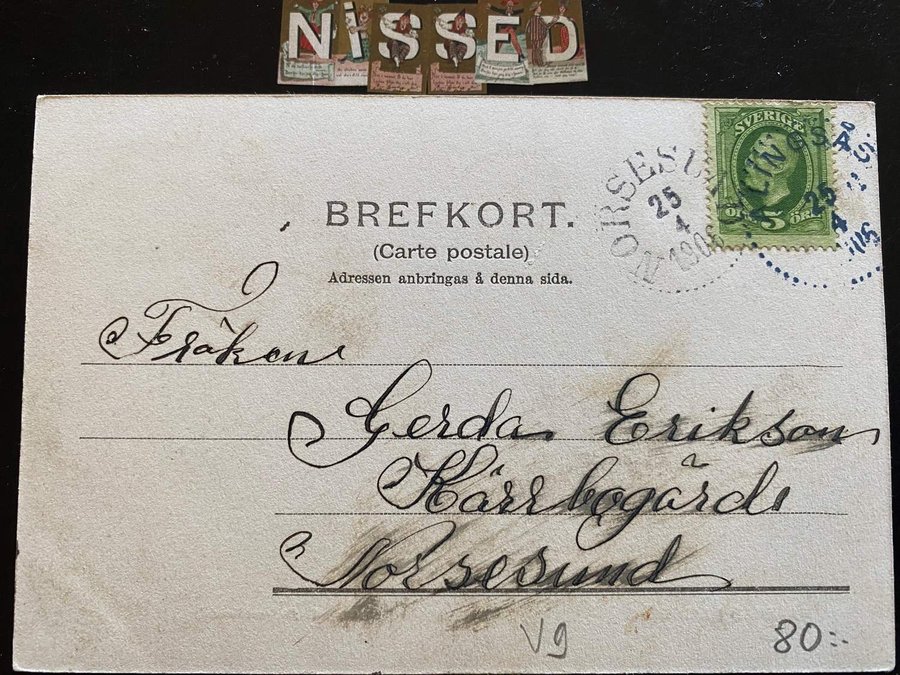 NISSED
BREFKORT.
(Carte postale)
Adressen anbringas å denna sida.
SVERIGE
5 ÖRE
NORSESUND
25
4
1906
ALINGSÅS
25
4
Fröken
Gerda Erikson
Kärrbogärde
Norsesund
V9
80:-